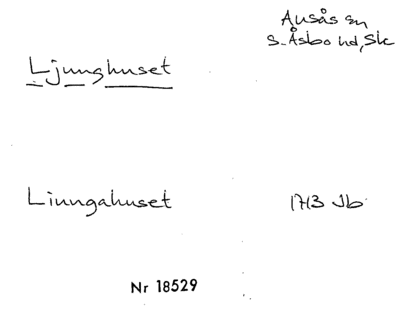 Ausås sn
S. Åsbo hd, Sk
Ljunghuset
Liungahuset 1713 Jb
Nr 18529